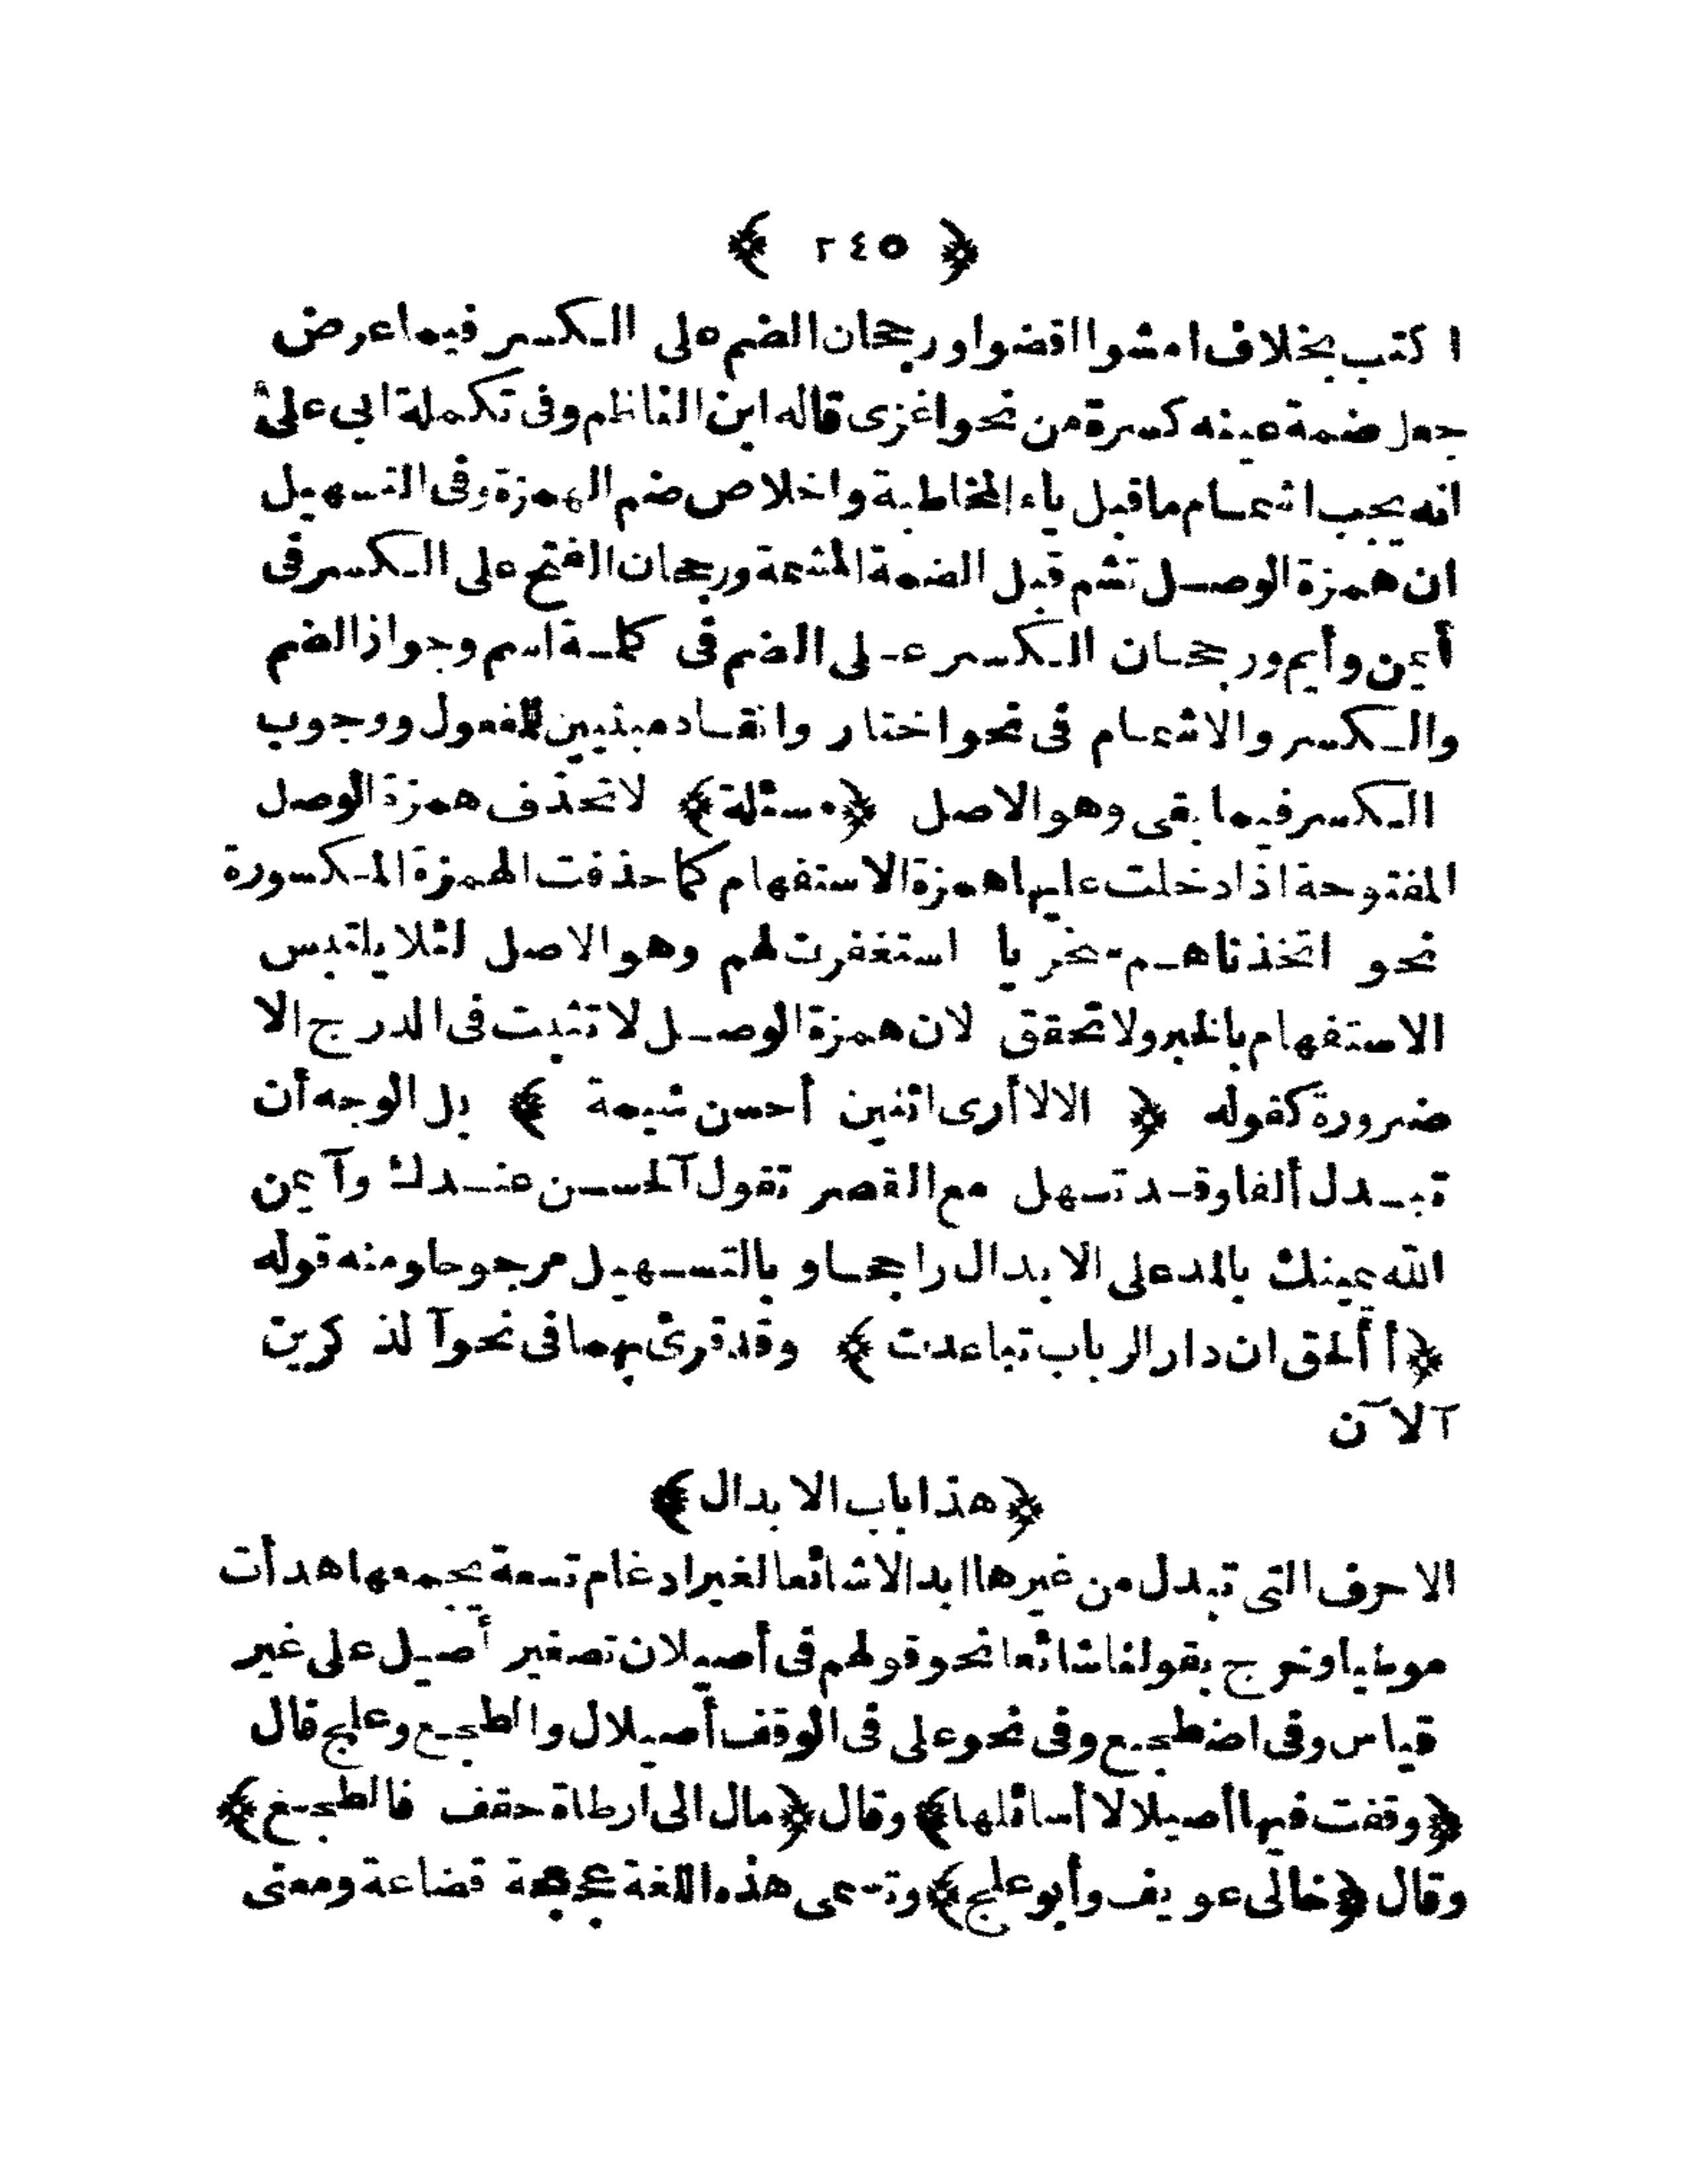 ﴿ ٢٤٥ ﴾
اكتب بخلاف امشوا اقضوا ورجحان الضم على الكسر فيما عرض
جعل ضمة عينه كسرة من نحو اغزى قاله ابن الناظم وفى تكملة ابى على
انه يجب اشمام ما قبل ياء المخاطبة واخلاص ضم الهمزة وفى التسهيل
ان همزة الوصل تشم قبل الضمة المشمة ورجحان الفتح على الكسر فى
أيمن وأيم ورجحان الكسر على الضم فى كلمة اسم وجواز الضم
والكسر والاشمام فى نحو اختار وانقاد مبنيين للمفعول ووجوب
الكسر فيما بقى وهو الاصل ﴿مسئلة﴾ لا تحذف همزة الوصل
المفتوحة اذا دخلت عليها همزة الاستفهام كما حذفت الهمزة المكسورة
نحو اتخذناهم سخريا استغفرت لهم وهو الاصل لئلا يلتبس
الاستفهام بالخبر ولا تحقق لان همزة الوصل لا تثبت فى الدرج الا
ضرورة كقوله ﴿ الا لا أرى اثنين أحسن شيمة ﴾ بل الوجه أن
تبدل ألفا وقد تسهل مع القصر تقول آلحسن عندك وآيمن
الله يمينك بالمد على الابدال راجحا وبالتسهيل مرجوحا ومنه قوله
﴿أ ألحق ان دار الرباب تباعدت﴾ وقد قرئ بهما فى نحو آلذكرين
آلآن
﴿هذا باب الابدال﴾
الاحرف التى تبدل من غيرها ابدالا شائعا لغير ادغام تسعة يجمعها هدأت
موطيا وخرج بقولنا شائعا نحو قولهم فى أصيلان تصغير أصيل على غير
قياس وفى اضطجع وفى نحو على فى الوقف أصيلال والطجع وعلج قال
﴿وقفت فيها أصيلالا أسائلها﴾ وقال ﴿مال الى ارطاة حقف فالطجع﴾
وقال ﴿خالى عويف وأبو علج﴾ وتسمى هذه اللغة عجعجة قضاعة ومعنى